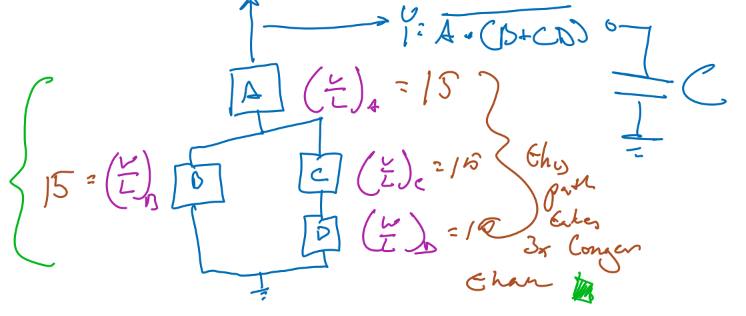 Y = \overline{A \cdot (B + CD)}
C
A (W/L)_A = 15
15 = (W/L)_B B C (W/L)_C = 15
D (W/L)_D = 15
this
path
takes
3x longer
than